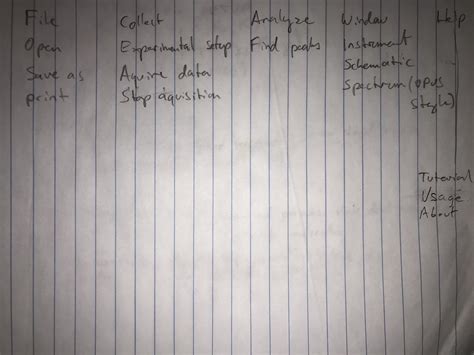 File Collect Analyze Window Help
Open Experimental setup Find peaks Instrument
Schematic
Save as Aquire data
Spectrum (opus
print Stop aquisition
style)
Tutorial
Usage
About